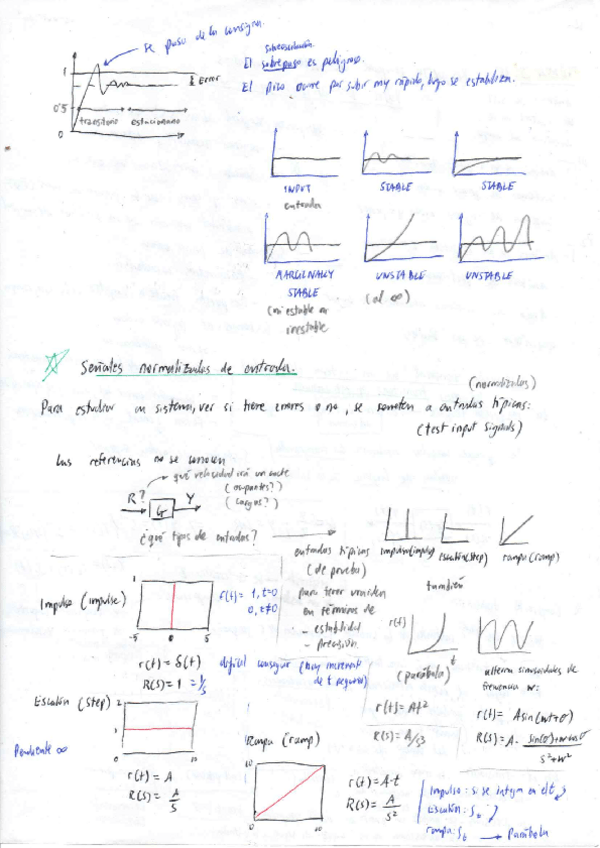 se pasa de la consigna.
sobreoscilación
El sobrepaso es peligroso.
El pico ocurre por subir muy rápido, luego se estabiliza.
1
Error
0.5
transitorio estacionario
0
INPUT STABLE STABLE
entrada
MARGINALLY UNSTABLE UNSTABLE
STABLE (al ∞)
(ni estable ni
inestable
Señales normalizadas de entrada.
(normalizadas)
Para estudiar un sistema, ver si tiene errores o no, se someten a entradas típicas:
(test input signals)
Las referencias no se conocen
qué velocidad irá un coche
R? G Y
(ocupantes?)
(cargas?)
¿qué tipos de entradas?
entradas típicas impulso(impulse) escalón(step) rampa(ramp)
(de prueba)
también
para tener unidades
en términos de
- estabilidad
- precisión.
Impulso (impulse)
1
-5 0 5
r(t) = 1, t=0
0, t≠0
r(t) = δ(t) difícil conseguir (hay incremento
R(s) = 1 = 1/s de t seguros)
r(t)
t
(parábola)
r(t) = At²
R(s) = A/s3
alterna sinusoidales de
frecuencia w:
r(t) = A sin(wt+θ)
R(s) = A· sin(θ)+w cos θ
s²+w²
Escalón (step)
2
1
0 10
Pendiente ∞
r(t) = A
R(s) = A/s
Rampa (ramp)
10
0 10
r(t) = A·t
R(s) = A/s²
Impulso: si se integra en el t
Escalón: St
rampa: St → Parábola